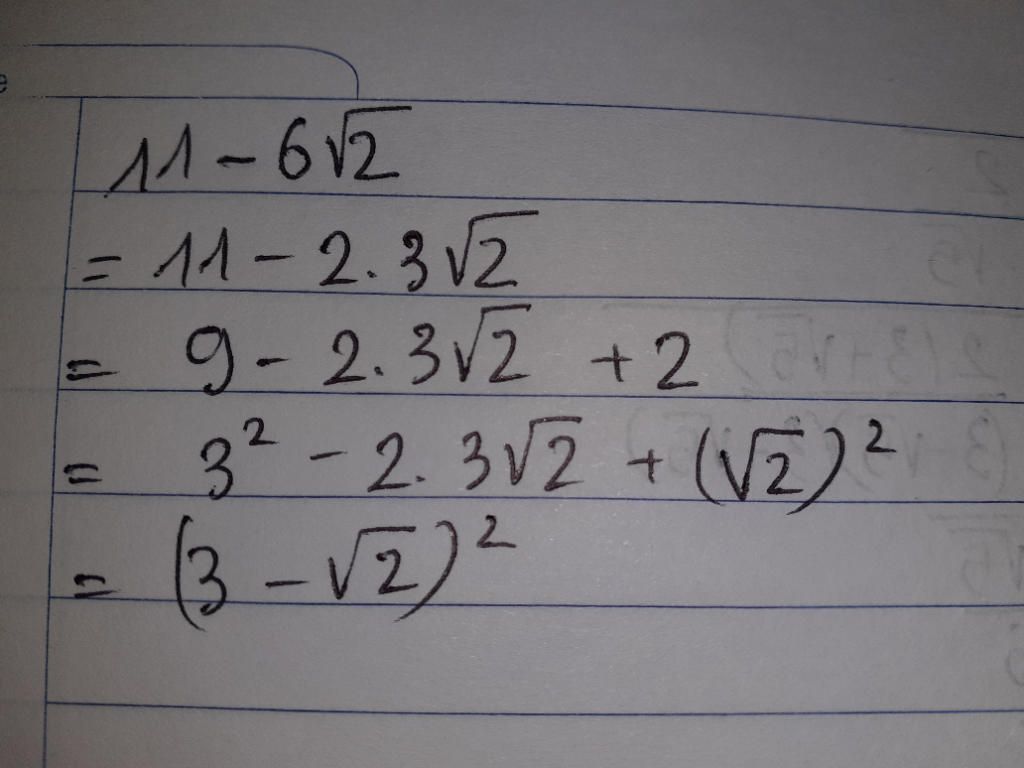 11 - 6√2
= 11 - 2.3√2
= 9 - 2.3√2 + 2
= 3² - 2.3√2 + (√2)²
= (3 - √2)²